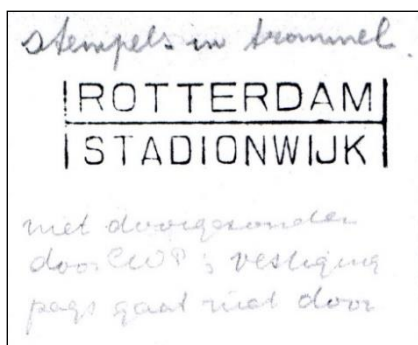 stempels in trommel.
ROTTERDAM
STADIONWIJK
niet doorgezonden
door CWP; vestiging
pags gaat niet door